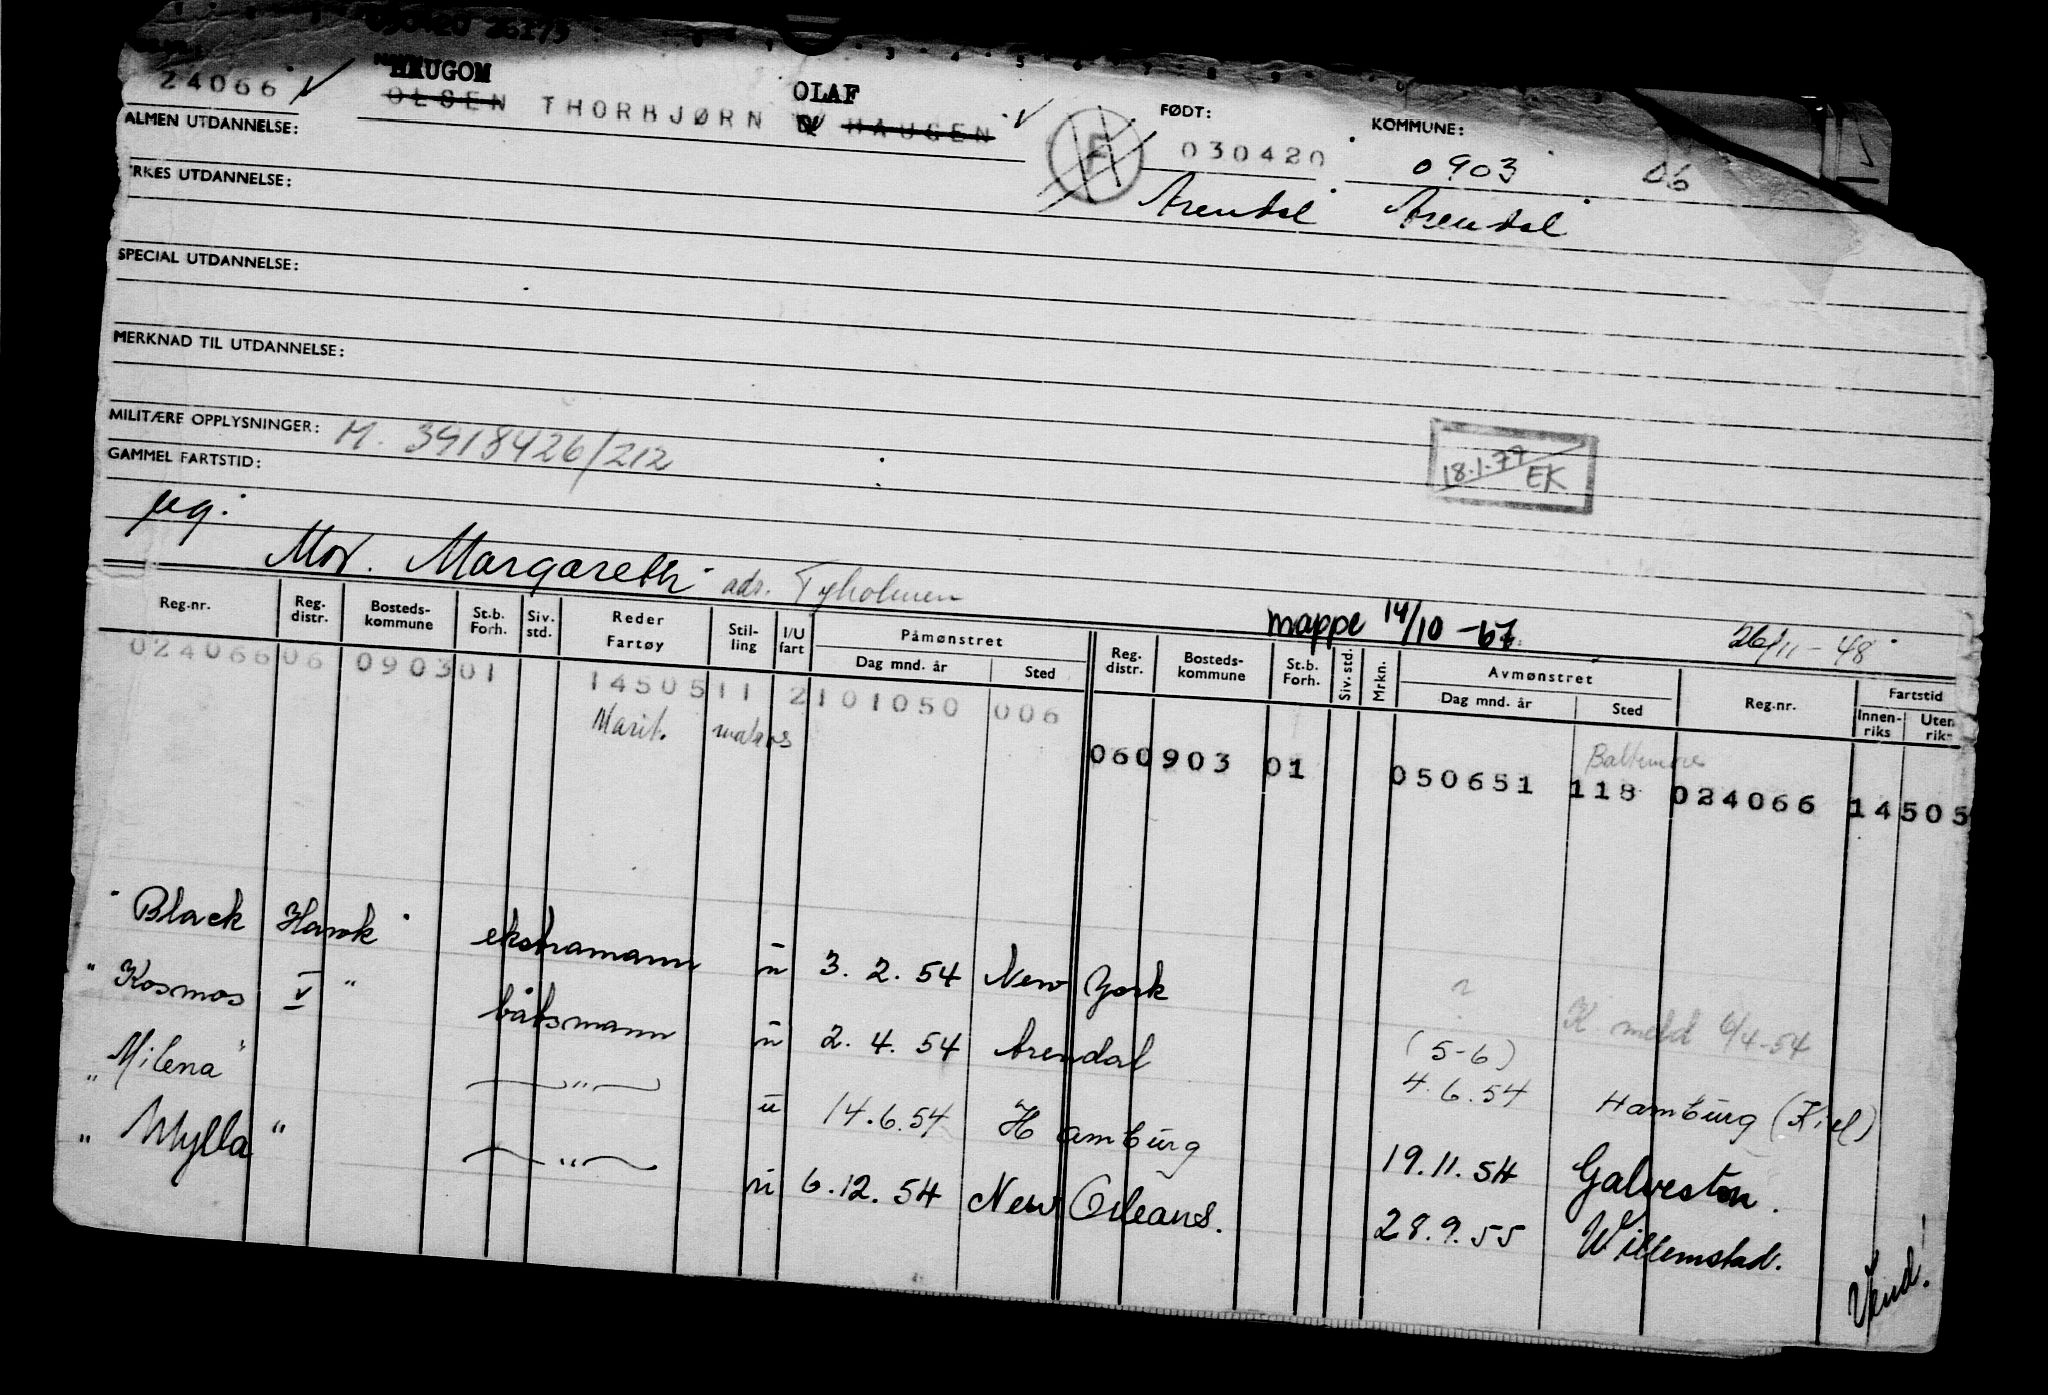 030420 26175
24066 HAUGOM
OLSEN THORBJØRN OLAF HAUGEN
FØDT: 030420
KOMMUNE: 0903 06
Arendal Arendal
ALMEN UTDANNELSE:
YRKES UTDANNELSE:
SPECIAL UTDANNELSE:
MERKNAD TIL UTDANNELSE:
MILITÆRE OPPLYSNINGER: M. 3918426/212
18.1.77 EK
GAMMEL FARTSTID:
ug.
Mor. Margareth adr. Tyholmen
mappe 14/10-67. 26/11-48
Reg.nr. Reg. distr. Bosteds-kommune St.b. Forh. Siv. std. Reder Fartøy Stil-ling I/U fart Påmønstret Dag mnd. år Sted Reg. distr. Bosteds-kommune St.b. Forh. Siv. std. Mrkn. Avmønstret Dag mnd. år Sted Reg.nr. Fartstid Innen-riks Uten riks
024066 06 0903 01 14505 11 2 101050 006
Marit. matros
Baltimore
06 0903 01 050651 118 024066 14505
"Black Hawk" ekstramann u 3. 2. 54 New York ? K. meld 6/4-54
"Kosmos V" båtsmann u 2. 4. 54 Arendal (5-6) 4.6.54 Hamburg (Kiel)
"Milena" —"— u 14.6.54 Hamburg 19.11.54 Galveston.
"Mylla" —"— u 6.12.54 New Orleans. 28.9.55 Willemstad.
Vend.